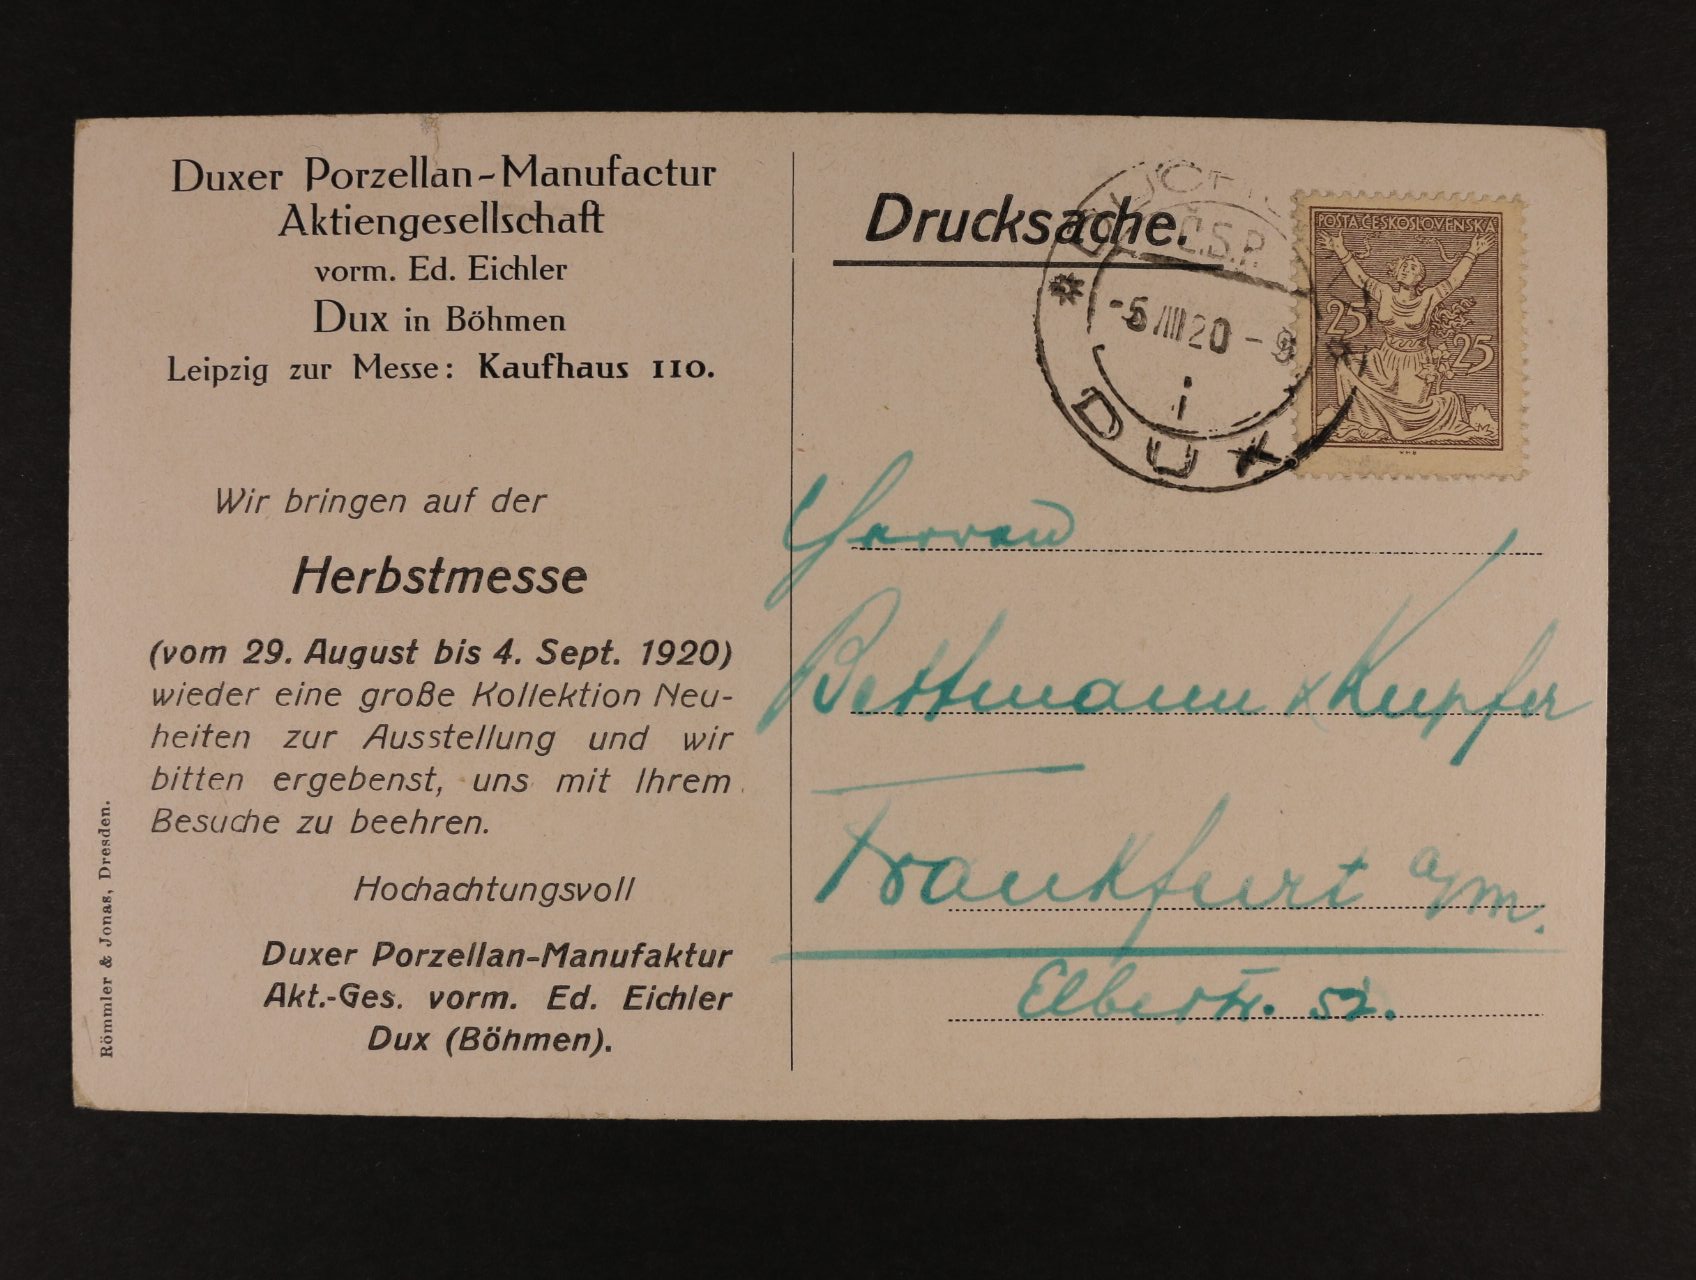 Duxer Porzellan-Manufactur
Aktiengesellschaft
vorm. Ed. Eichler
Dux in Böhmen
Leipzig zur Messe: Kaufhaus 110.
Wir bringen auf der
Herbstmesse
(vom 29. August bis 4. Sept. 1920)
wieder eine große Kollektion Neu-
heiten zur Ausstellung und wir
bitten ergebenst, uns mit Ihrem
Besuche zu beehren.
Hochachtungsvoll
Duxer Porzellan-Manufaktur
Akt.-Ges. vorm. Ed. Eichler
Dux (Böhmen).
Römmler & Jonas, Dresden.
Drucksache.
Č.S.P.
20
i
DUX
POSTA ČESKOSLOVENSKÁ
25
25
Herren
Bettmann & Kupfer
Frankfurt a/m.
52.